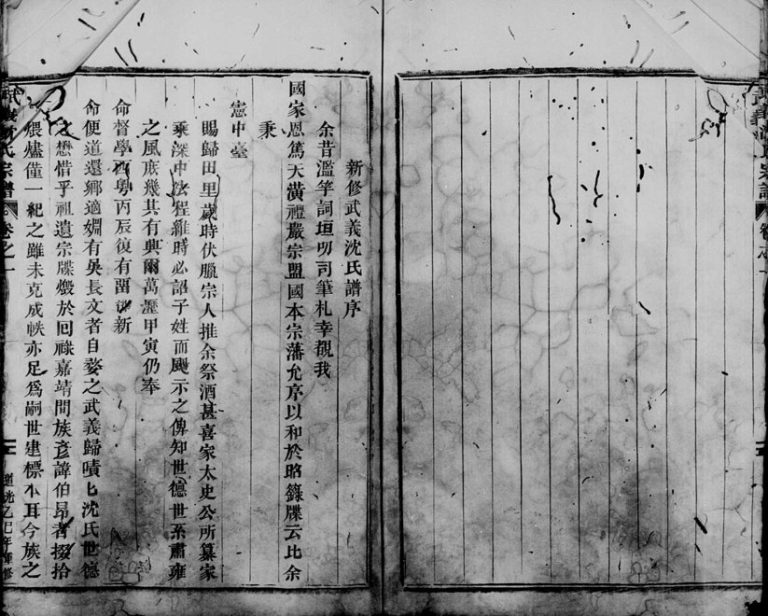 新修武義沈氏譜序
余昔濫竽詞垣叨司筆札幸覩我
國家恩篤天潢禮嚴宗盟國本宗藩允序以和於昭籙牒云比余
秉
憲中臺
賜歸田里歲時伏臘宗人推余祭酒甚喜家太史公所纂家
乘深中欵程維時必詔子姓而颺示之俾知世德世系肅雍
之風庶幾其有興爾萬曆甲寅仍奉
命督學西粤丙辰復有留新
命便道還鄉適婣有吳長文者自婺之武義歸嘖匕沈氏世德
之懋惜乎祖遺宗牒燬於回祿嘉靖間族彥諱伯昂者掇拾
煨燼僅一紀之雖未克成帙亦足爲嗣世建標木耳今族之
氏宗譜
卷之一
道光乙巳年重修
武義沈氏宗譜
卷之一